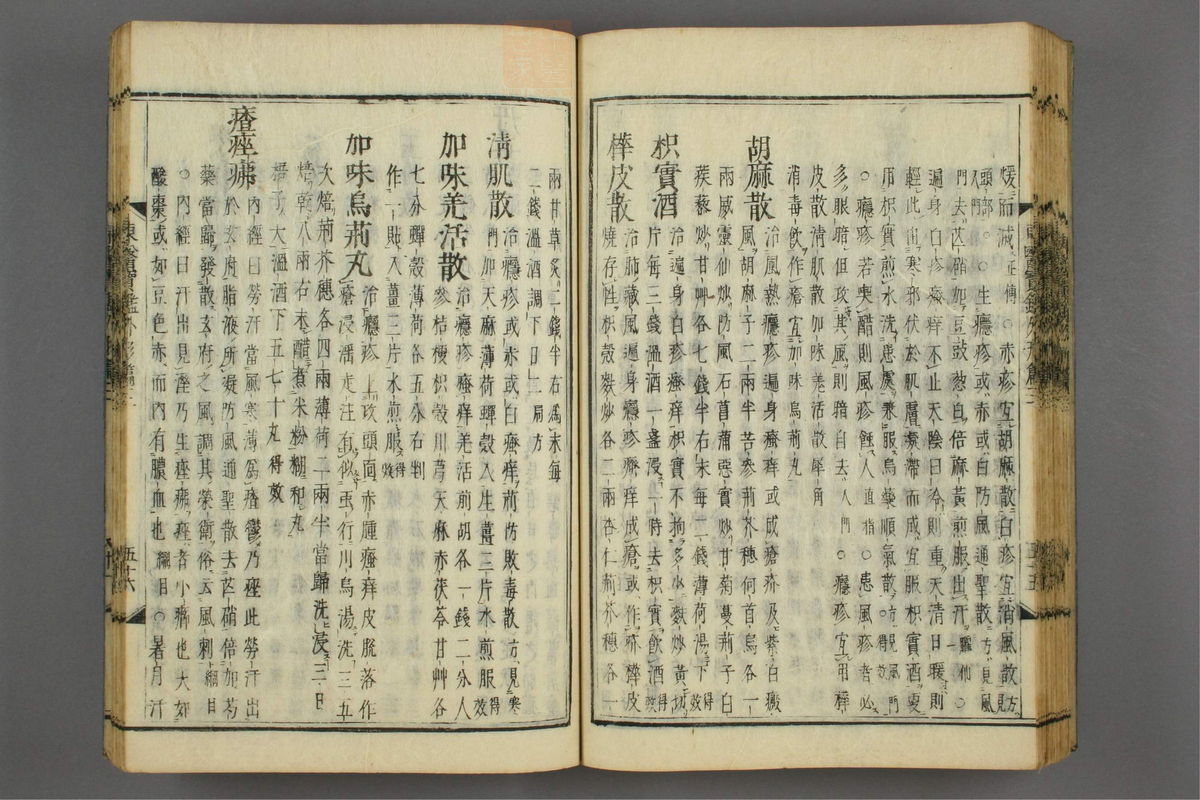 煖而減正傳○赤疹宜胡麻散白疹宜消風散方見
頭部○生癮疹或赤或白防風通聖散方見風
門去芒硝加豆豉葱白倍麻黃煎服出汗羅知○一
遍身白疹瘙痒不止天陰日冷則重天清日暖則
輕此由寒邪伏於肌膚凝滯而成宜服枳實酒更
用枳實煎水洗患處兼服烏藥順氣散方見風門得效
○癮疹若喫醋則風疹蝕人直指○患風疹者必
多眼暗但攻其風則暗自去入門○癮疹宜用樺
皮散淸肌散加味羌活散犀角
消毒飮作瘡宜加味烏荊丸
胡麻散治風熱癮疹遍身瘙痒或成瘡疥及紫白癜
風胡麻子二兩半苦參荊芥穗何首烏各一
兩威靈仙炒防風石菖蒲惡實炒甘菊蔓荊子白
蒺藜炒甘艸各七錢半右末每二錢薄荷湯下得效
枳實酒治遍身白疹瘙痒枳實不拘多少麩炒黃切
片每三錢溫酒一盞浸一時去枳實飮酒得效
樺皮散治肺藏風遍身癮疹痒成瘡或作疥樺皮
燒存性枳殼麩炒各二兩杏仁荊芥穗各一
兩甘草炙二錢半右爲末每
二錢溫酒調下日二局方
淸肌散治癮疹或赤或白瘙痒荊防敗毒散方見寒
門加天麻薄荷蟬殼入生薑三片水煎服得效
加味羌活散治癮疹瘙痒羌活前胡各一錢二分人
參桔梗枳殼川芎天麻赤茯苓甘艸各
七分蟬殼薄荷各五分右剉
作一貼入薑三片水煎服得效
加味烏荊丸治癮疹上攻頭面赤腫瘙痒皮脫落作
瘡浸淫走注有似虫行川烏湯洗三五
次焙荊芥穗各四兩薄荷二兩半當歸洗浸三日
焙乾八兩右末醋煮米粉糊和丸
梧子大溫酒下五七十丸得效
瘡痤疿內經曰勞汗當風寒薄爲皶鬱乃痤此勞汗出
於玄府脂液所凝防風通聖散去芒硝倍加芍
藥當歸發散玄府之風調其榮衛俗云風刺綱目
○內經曰汗出見濕乃生痤疿痤者小癤也大如
酸棗或如豆色赤而內有膿血也綱目○暑月汗
東醫寶鑑外形篇
五十六